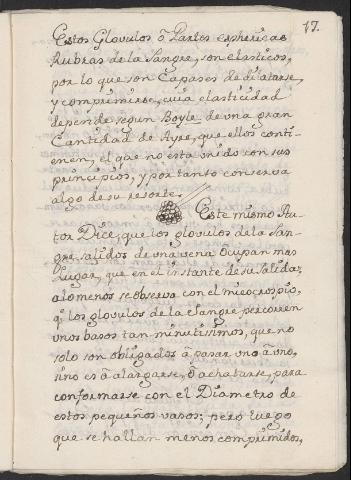 17.
Estos Glovulos ò Partes esphericas
Rubras de la Sangre, son elasticos,
por lo que son Capases de dilatarse,
y comprimirse, cuia elasticidad
depende segun Boyle de vna gran
Cantidad de Ayre, que ellos conti-
enen, el que no esta vnido con sus
principios, y por tanto conserva
algo de su resorte.
Este mismo Au-
tor Dice, que los glovulos de la San-
gre salidos de una vena Ocupan mas
Lugar, que en el instante de su salida;
alomenos se observa con el miecrospio,
q.e los glovulos de la Sangre percorren
vnos basos tan minutissimos, que no
solo son obligados à pasar vno à vno,
sino es â alargarse, ô achatarse, para
conformarse con el Diametro de
estos pequeños vasos; pero luego
que se hallan menos comprimidos,